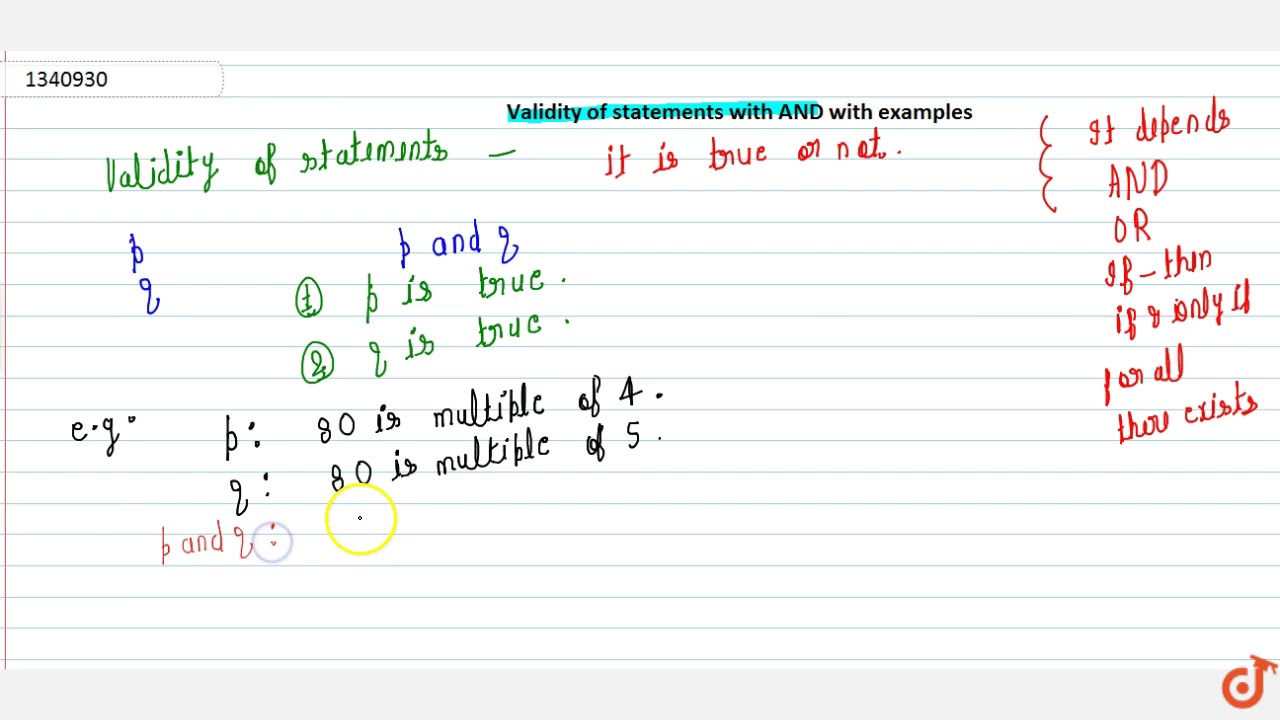 1340930
Validity of statements with AND with examples
Validity of statements — it is true or not.
It depends
AND
OR
If - then
if & only if
for all
there exists
p
q
p and q
① p is true.
② q is true.
e.g. p: 80 is multiple of 4.
q: 80 is multiple of 5.
p and q :